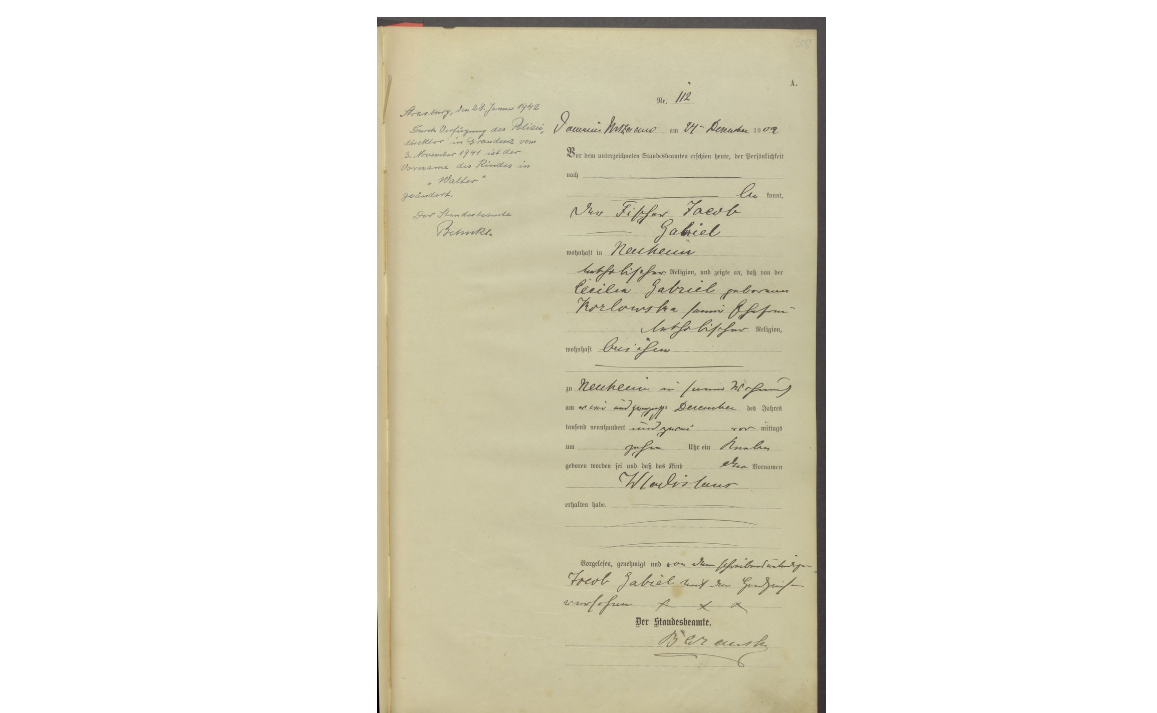 A.
Nr. 112
am 24 December 1902
Vor dem unterzeichneten Standesbeamten erschien heute, der Persönlichkeit
nach
be kannt,
Der Fischer Jacob
Gabriel
wohnhaft in Neuheim
katholischer Religion, und zeigte an, daß von der
Cecilia Gabriel geborenen
Kozlowska seiner Ehefrau
katholischer Religion,
wohnhaft bei ihm
zu Neuheim in seiner Wohnung
am und zwanzigsten December des Jahres
tausend neunhundert und zwei vor mittags
um zehn Uhr ein Knabe
geboren worden sei und daß das Kind den Vornamen
Wladislaus
erhalten habe.
Vorgelesen, genehmigt und von dem schreibunkundigen
Jacob Gabriel mit den Handzeichen
versehen + x x
Der Standesbeamte.
Strasburg, den 28. Januar 1942
Durch Verfügung des Polizei,
direktor in Graudenz vom
3. November 1941 ist der
Vorname des Kindes in
„Walter"
geändert.
Der Standesbeamte